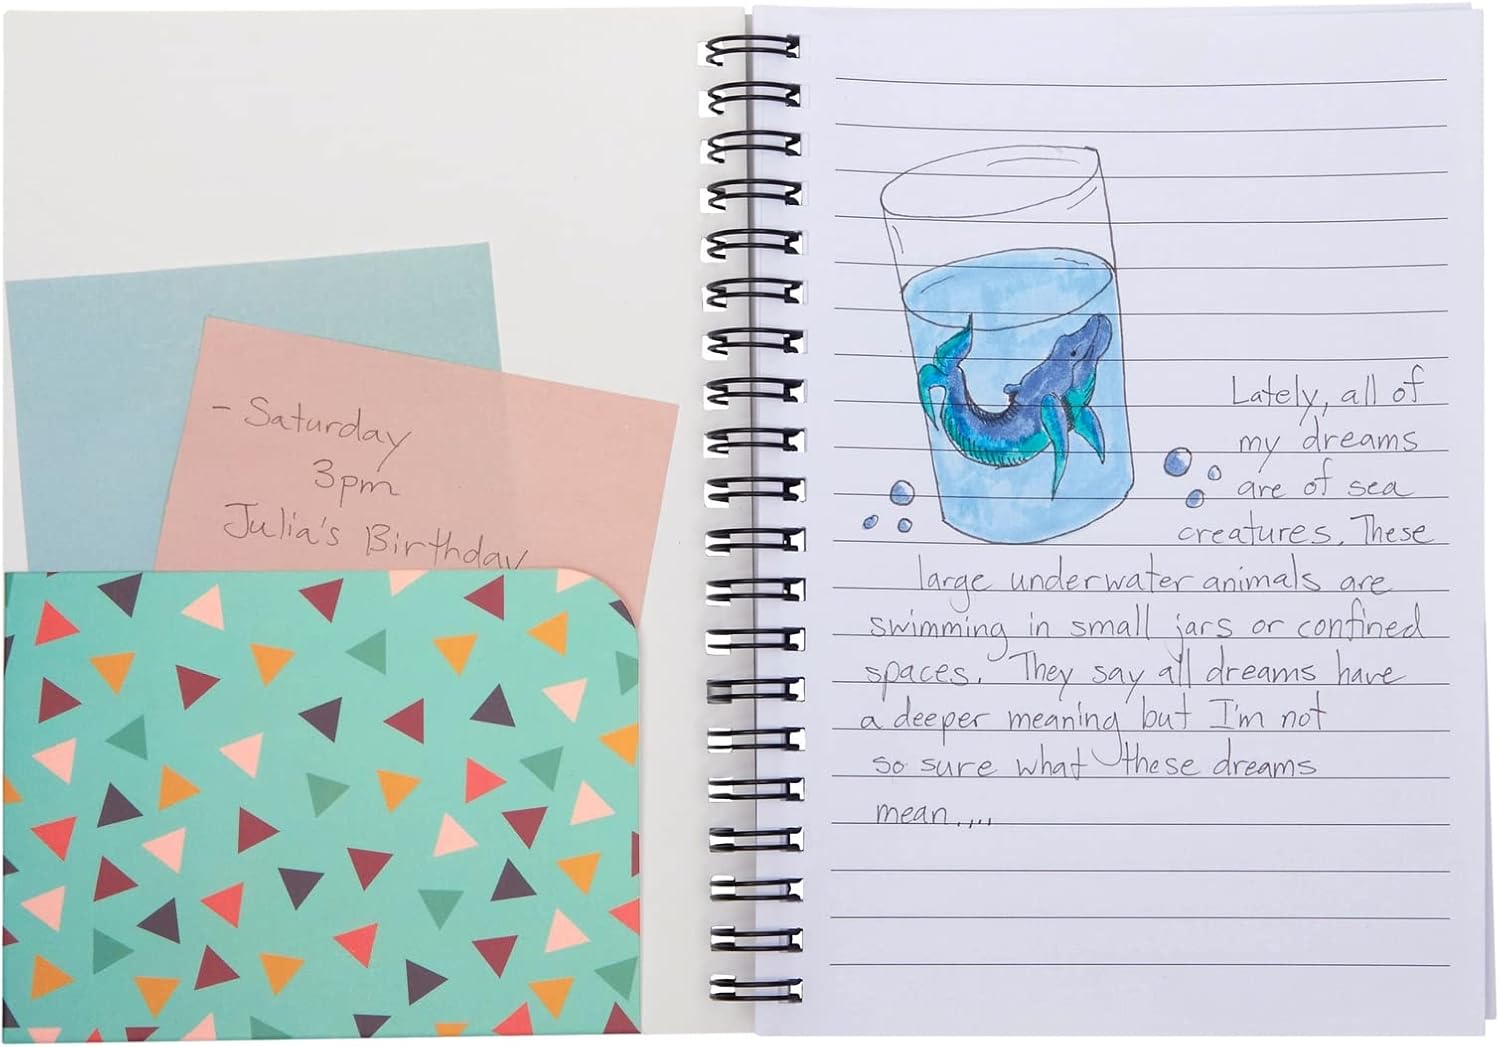 - Saturday
3pm
Julia's Birthday
Lately, all of
my dreams
are of sea
creatures. These
large underwater animals are
swimming in small jars or confined
spaces. They say all dreams have
a deeper meaning but I'm not
so sure what these dreams
mean....